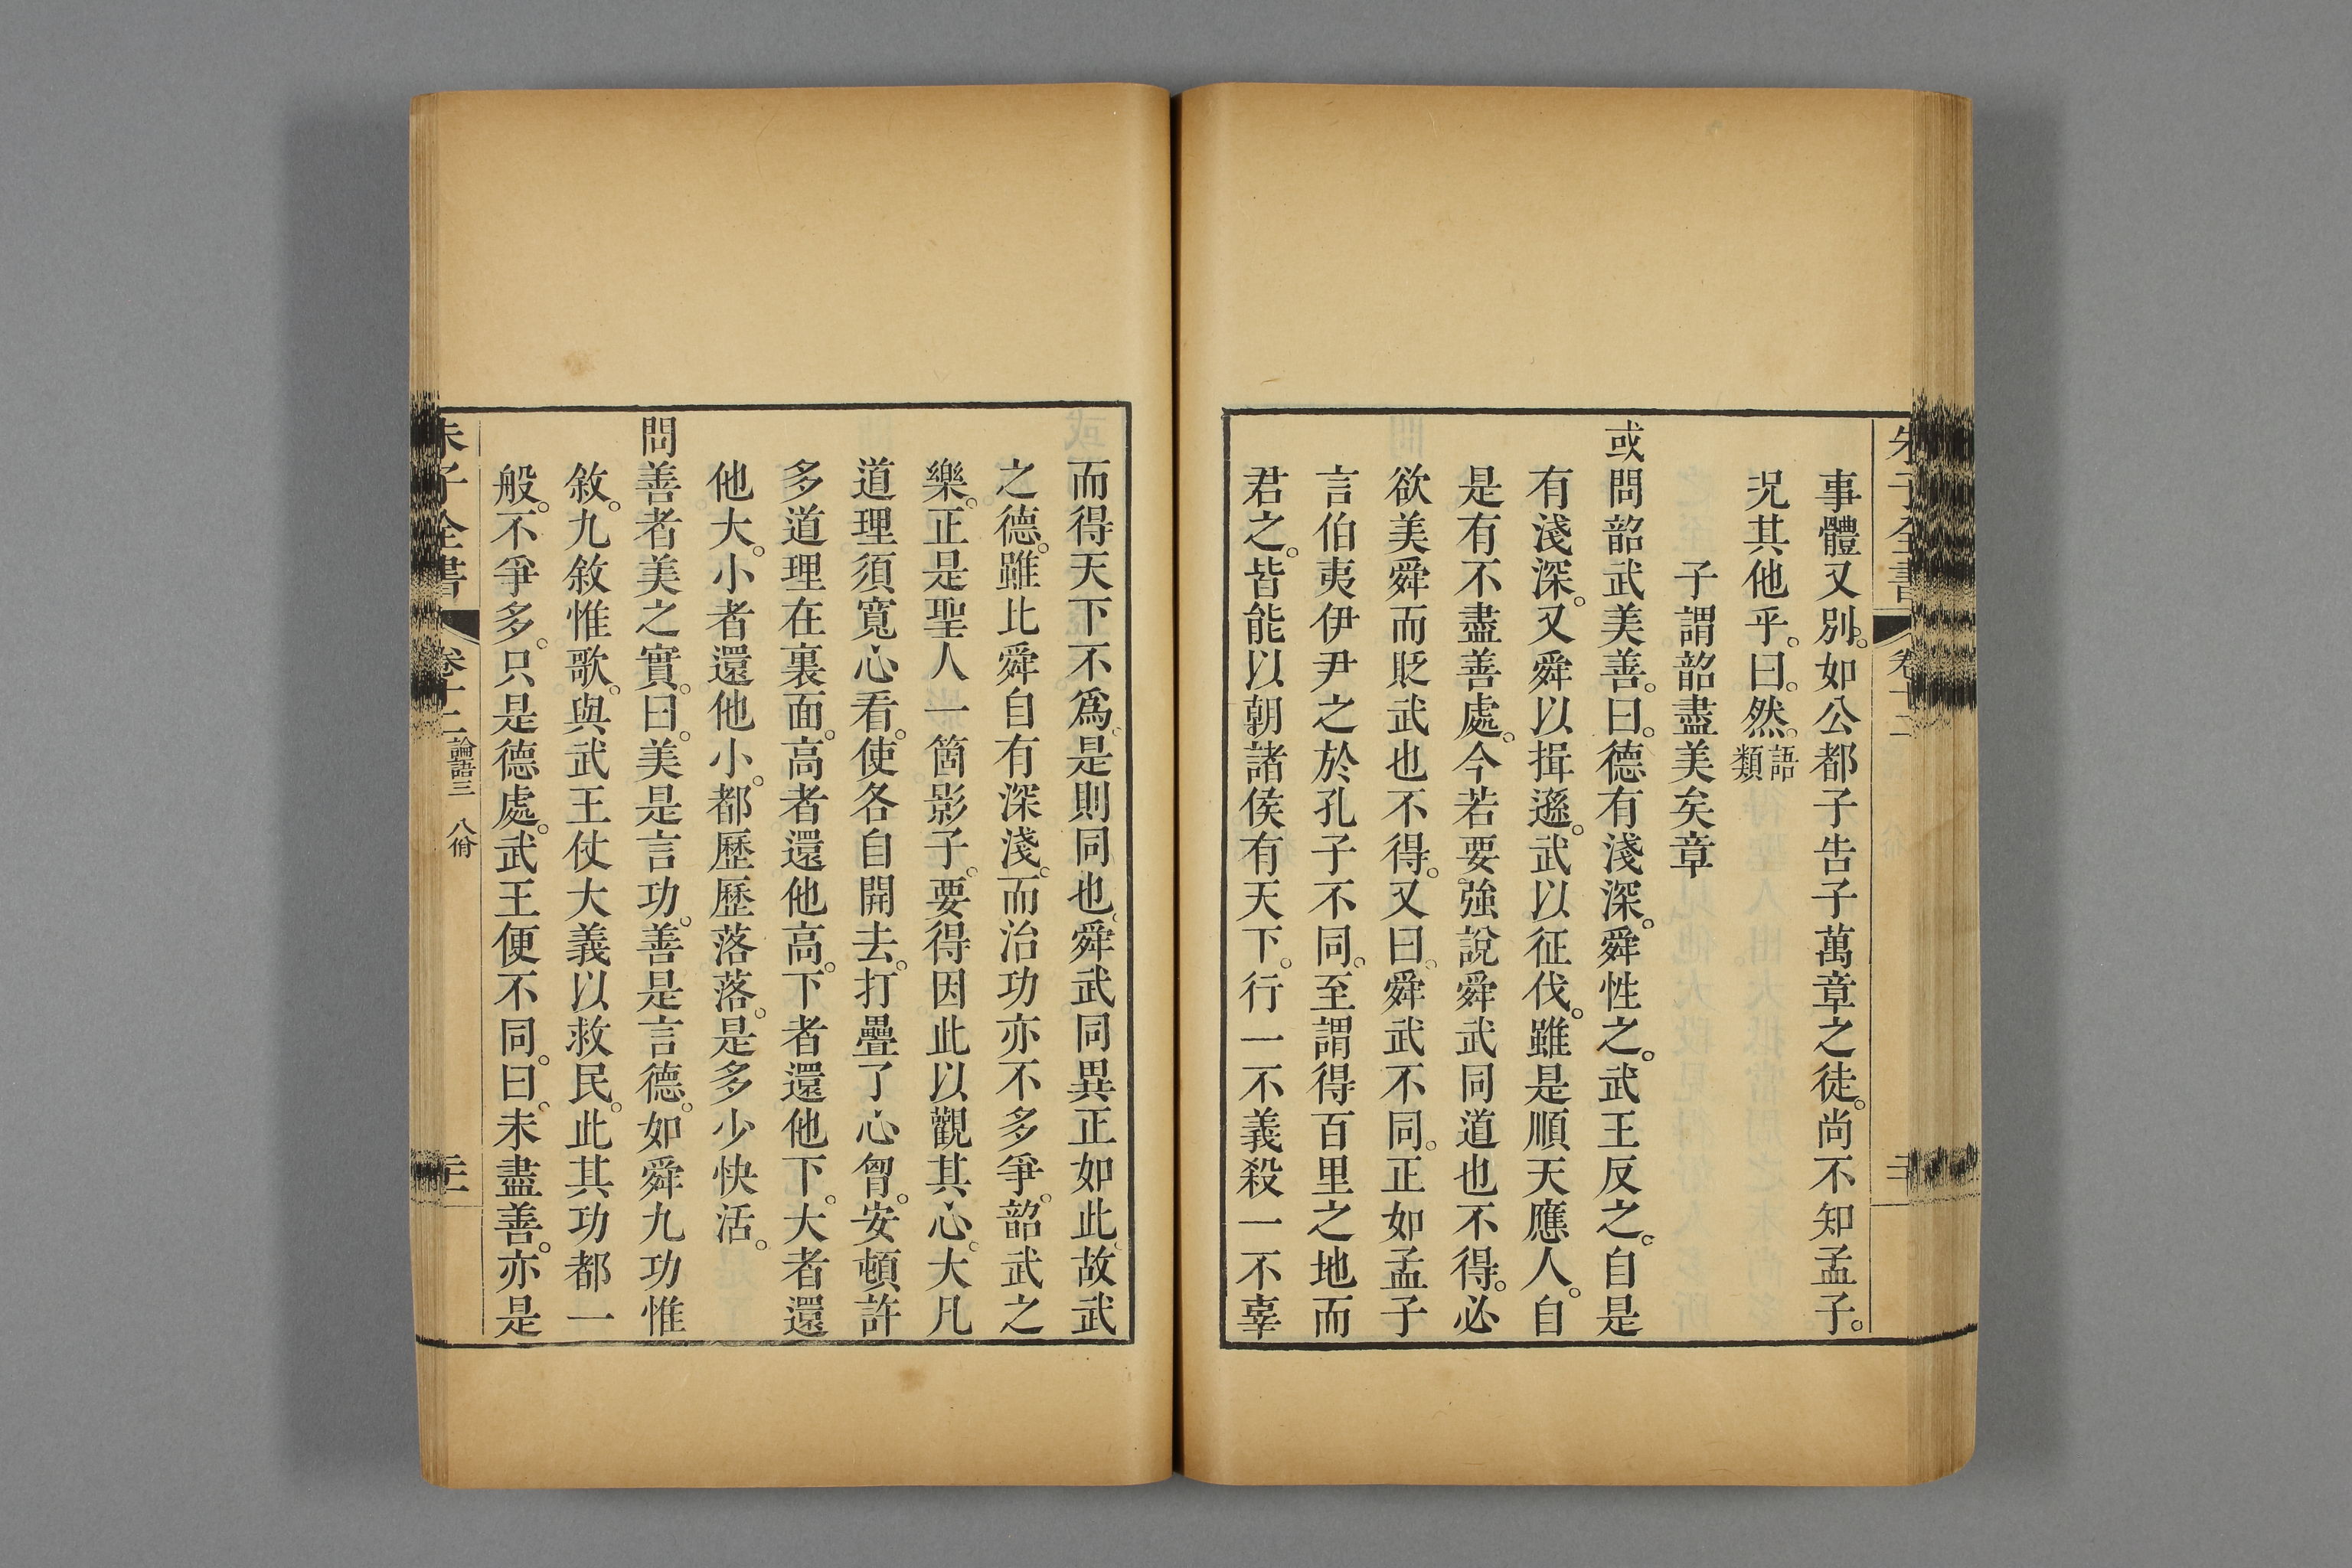 事體又別。如公都子告子萬章之徒。尚不知孟子。
况其他乎。曰。然。語類
子謂韶盡美矣章
或問韶武美善。曰。德有淺深。舜性之。武王反之。自是
有淺深。又舜以揖遜。武以征伐。雖是順天應人。自
是有不盡善處。今若要強說舜武同道也不得。必
欲美舜而貶武也不得。又曰。舜武不同。正如孟子
言伯夷伊尹之於孔子不同。至謂得百里之地而
君之。皆能以朝諸侯有天下。行一不義殺一不辜
而得天下不爲。是則同也。舜武同異正如此。故武
之德。雖比舜自有深淺。而治功亦不多爭。韶武之
樂。正是聖人一箇影子。要得因此以觀其心。大凡
道理須寬心看。使各自開去。打疊了心胷。安頓許
多道理在裏面。高者還他高。下者還他下。大者還
他大。小者還他小。都歷歷落落。是多少快活。
問善者美之實。曰。美是言功。善是言德。如舜九功惟
敘。九敘惟歌。與武王仗大義以救民。此其功都一
般。不爭多。只是德處。武王便不同。曰。未盡善。亦是
朱子全書 卷十二 論語三 八佾